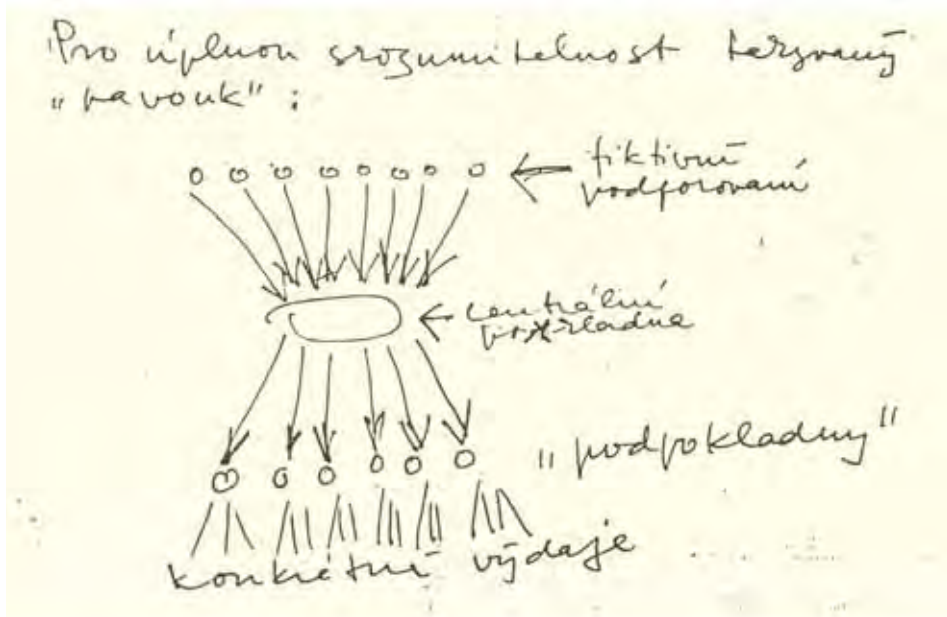 Pro úplnou srozumitelnost takzvaný
"pavouk":
fiktivně
podporovaní
centrální
pokladna
"podpokladny"
konkrétní výdaje